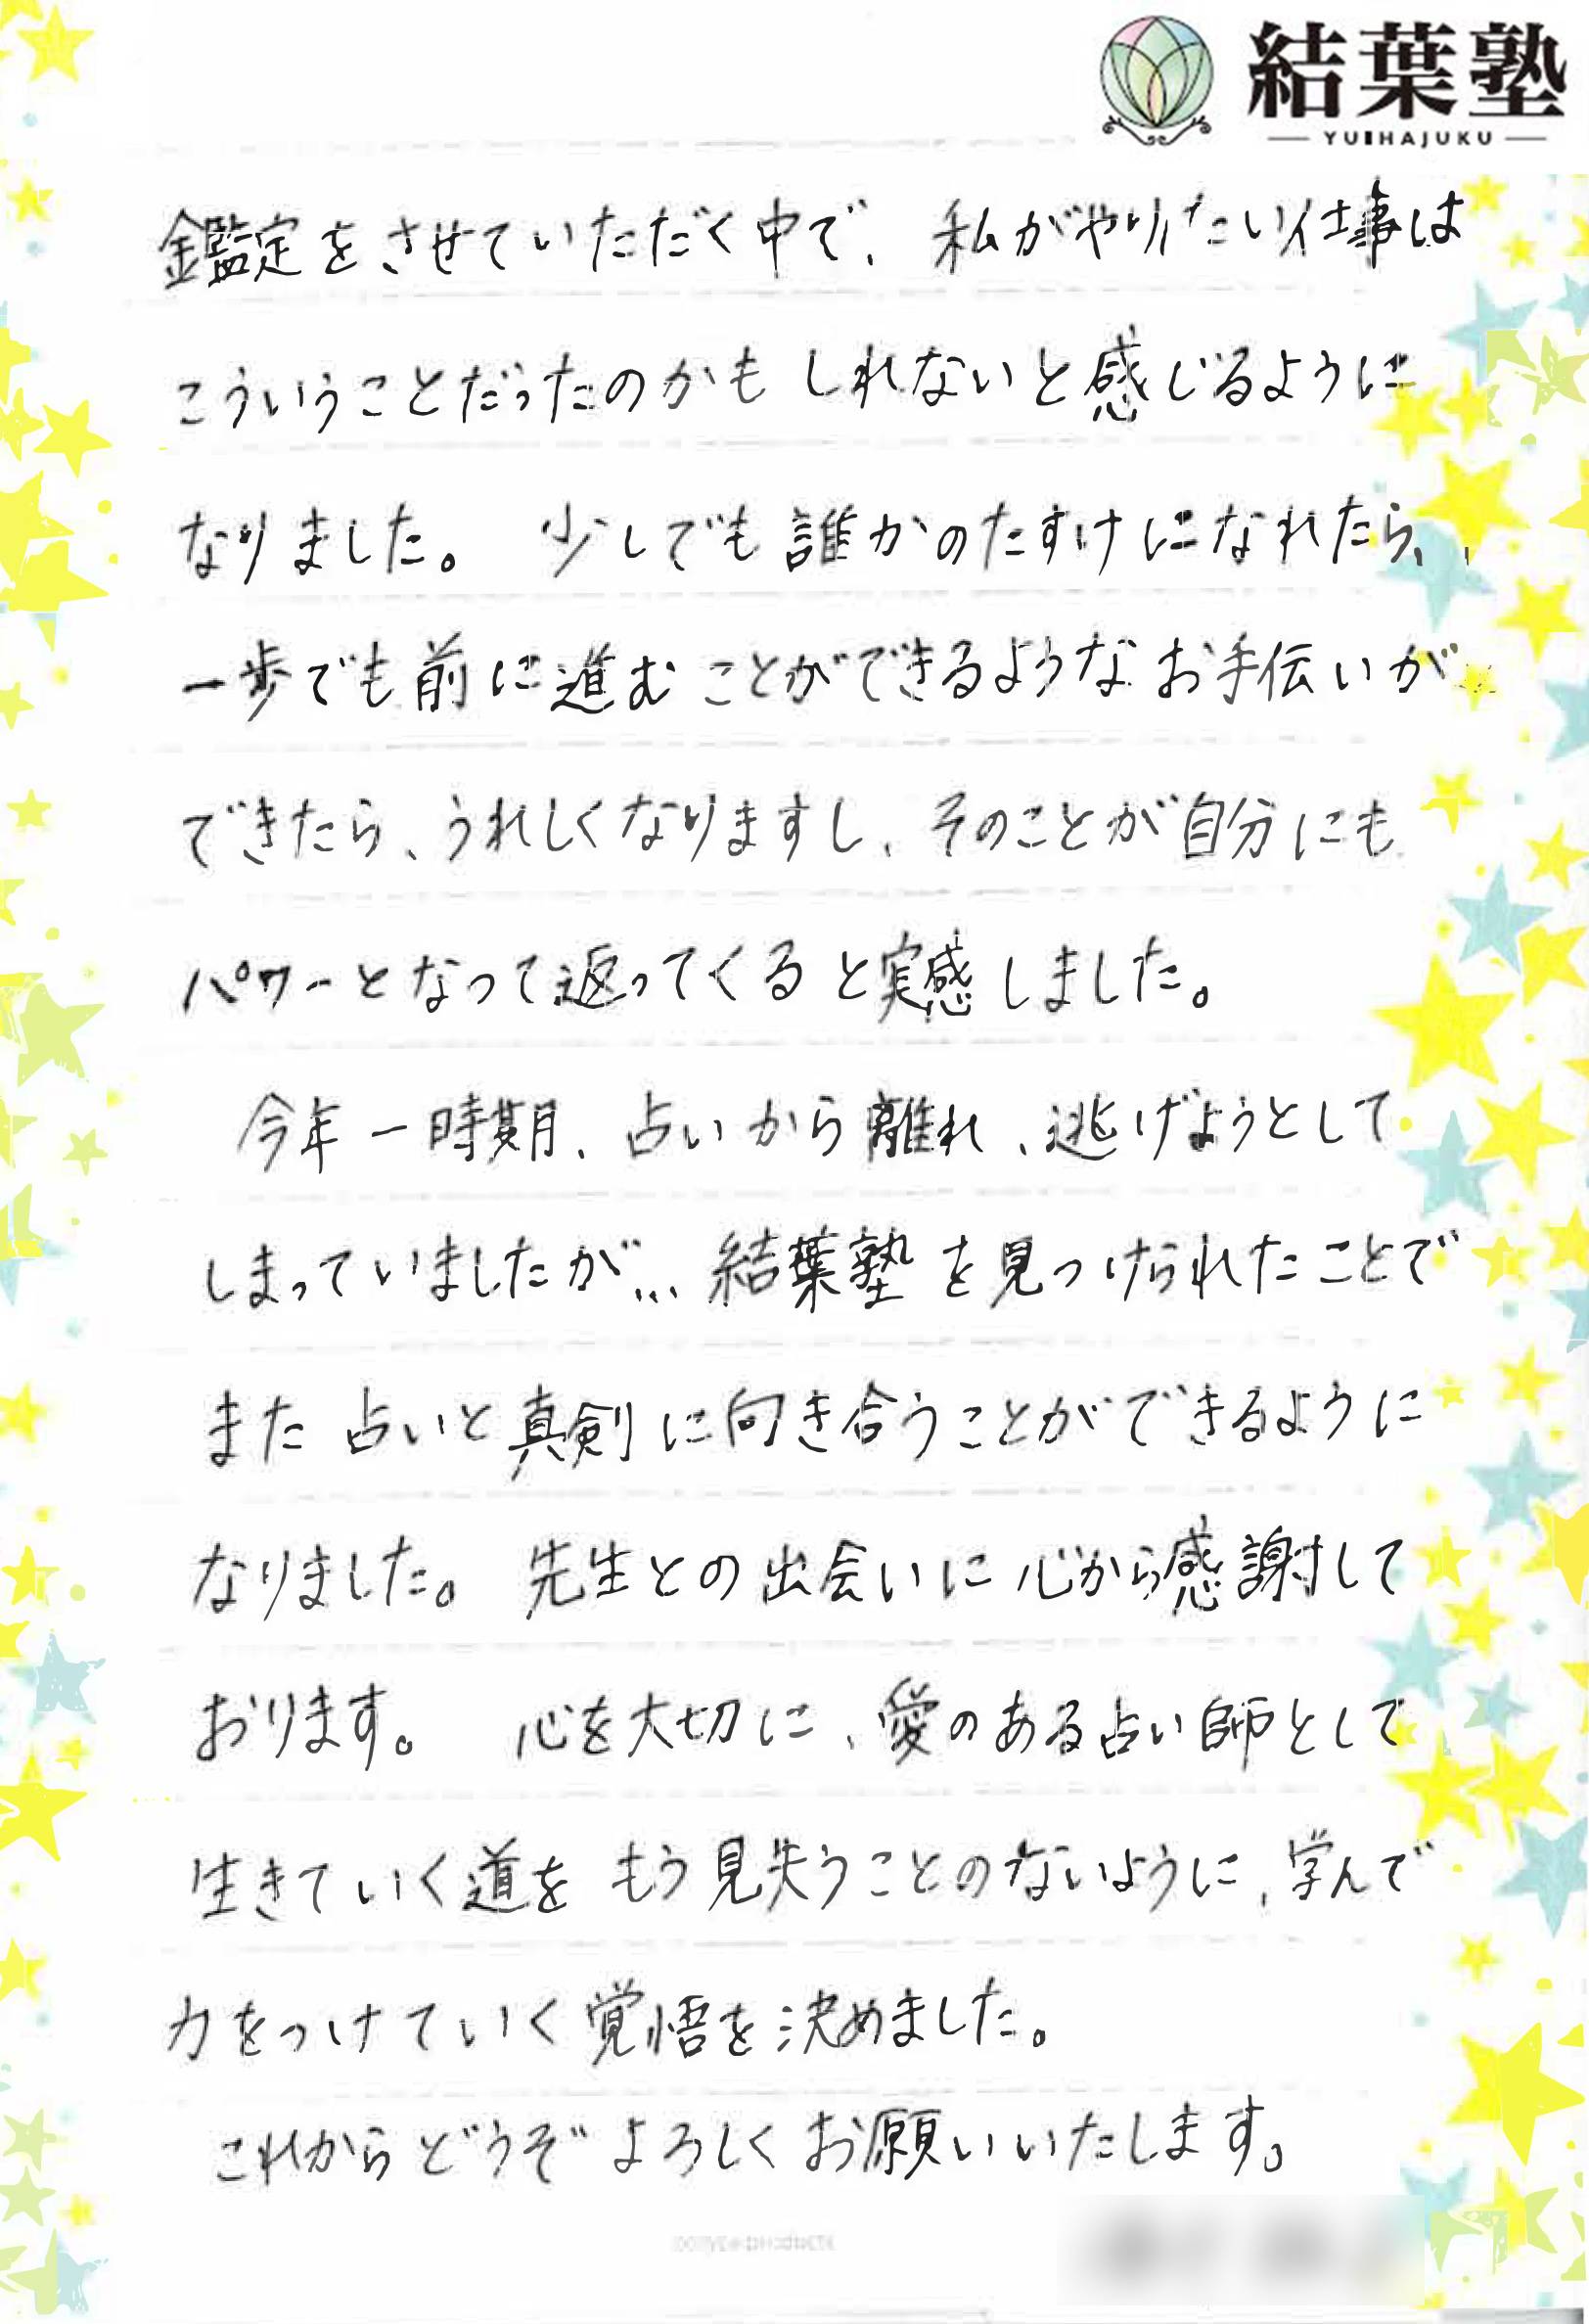 結葉塾
YUIHAJUKU
鑑定をさせていただく中で、私がやりたい仕事は
こういうことだったのかもしれないと感じるように
なりました。少しでも誰かのたすけになれたら、
一歩でも前に進むことができるようなお手伝いが
できたら、うれしくなりますし、そのことが自分にも
パワーとなって返ってくると実感しました。
今年一時期、占いから離れ、逃げようとして
しまっていましたが…結葉塾を見つけられたことで
また占いと真剣に向き合うことができるように
なりました。先生との出会いに心から感謝して
おります。心を大切に、愛のある占い師として
生きていく道をもう見失うことのないように、学んで
力をつけていく覚悟を決めました。
これからどうぞよろしくお願いいたします。